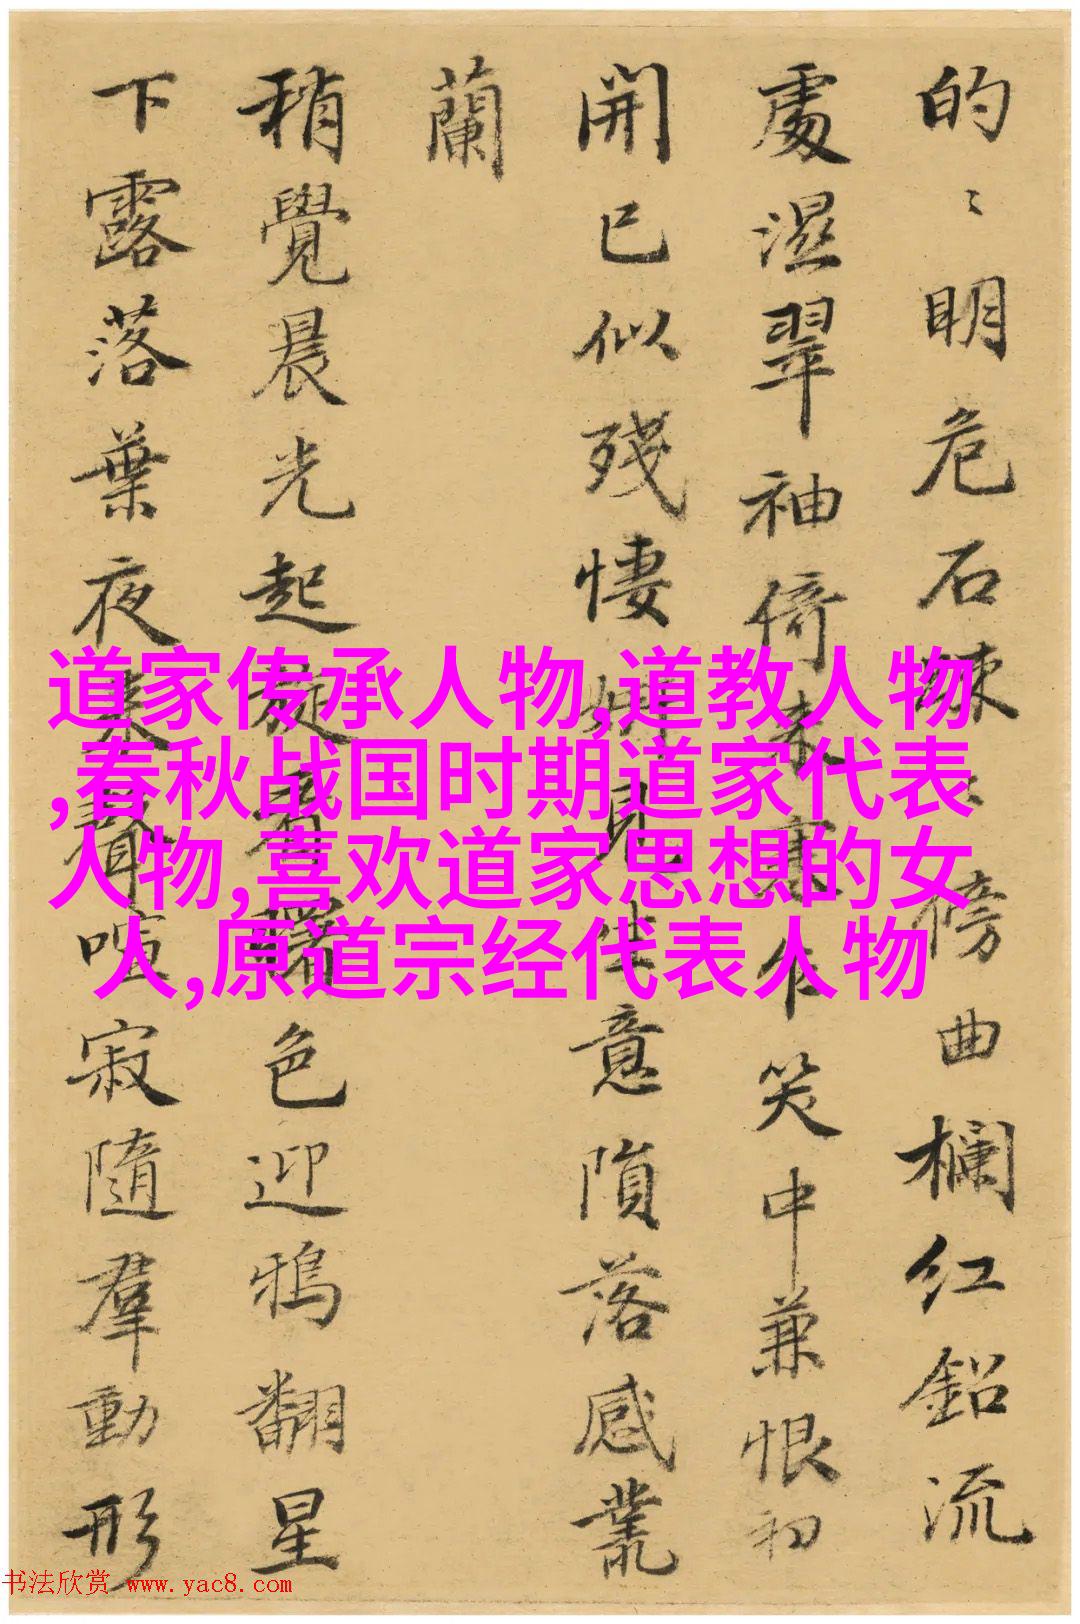 的〻明危石疎〻傍曲欄红鉛流
處濕翠袖倚来寒乍笑中兼恨初
開已似殘悽見生意隕落感叢
蘭
稍覺晨光起看曙色迎鴉翻星
下露落葉夜来聲喧寂隨羣動形
道家传承人物,道教人物
,春秋战国时期道家代表
人物,喜欢道家思想的女
人,原道宗经代表人物
书法欣赏 www.yac8.com